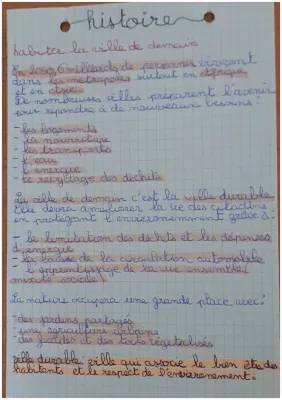 histoire
habiter la ville de demain
En 2050, 6 milliards de personnes vivront
dans les métropoles surtout en Afrique
et en Asie.
De nombreuses villes préparent l'avenir
pour répondre à de nouveaux besoins :
- les logements
- la nourriture
- les transports
- l'eau
- l'énergie
- le recyclage des déchets
La ville de demain c'est la ville durable
Elle devra améliorer la vie des citadins
en protégeant l'environnement grâce à :
- la limitation des déchits et les dépenses
d'énergie
- la baisse de la circulation automobile
- l'apprentissage de la vie ensemble
mixité sociale
La nature occupera une grande place avec :
- des jardins partagés
- une agriculture urbaine
- des façades et des toits végétalisés
ville durable : ville qui associe le bien être des
habitants et le respect de l'environnement.